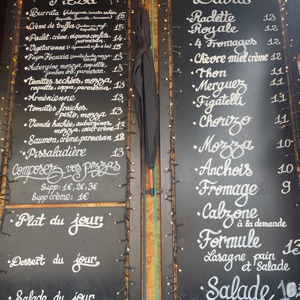 Burrata
15
Crème de truffes
15
Poulet, crème, oignons confits
parmesan
Végétarienne
15
Façon Focaccia
roquette, jambon cru, parmesan
Aubergine, mozza,
parmesan
Tomates séchées, mozza,
roquette, cappa, parmesan
Arménienne
13
Tomates fraîches,
pesto, mozza
Viande hachée, aubergines,
mozza, oeuf, crème
Saumon, crème, parmesan
12
Pissaladière
13
Composez vos Pizzas
Supp: 1€, 2€, 3€
Supp crème: 1€
Plat du jour
Dessert du jour
Salade du jour
Raclette 13
Royale 12
4 Fromages 12
Chèvre miel crème 12
Thon 11
Merguez 11
Figatelli 11
Chorizo 11
Mozza 10
Anchois 10
Fromage 9
Calzone 12
à la demande
Formule 13
Lasagne pain €
et Salade
Salade 10